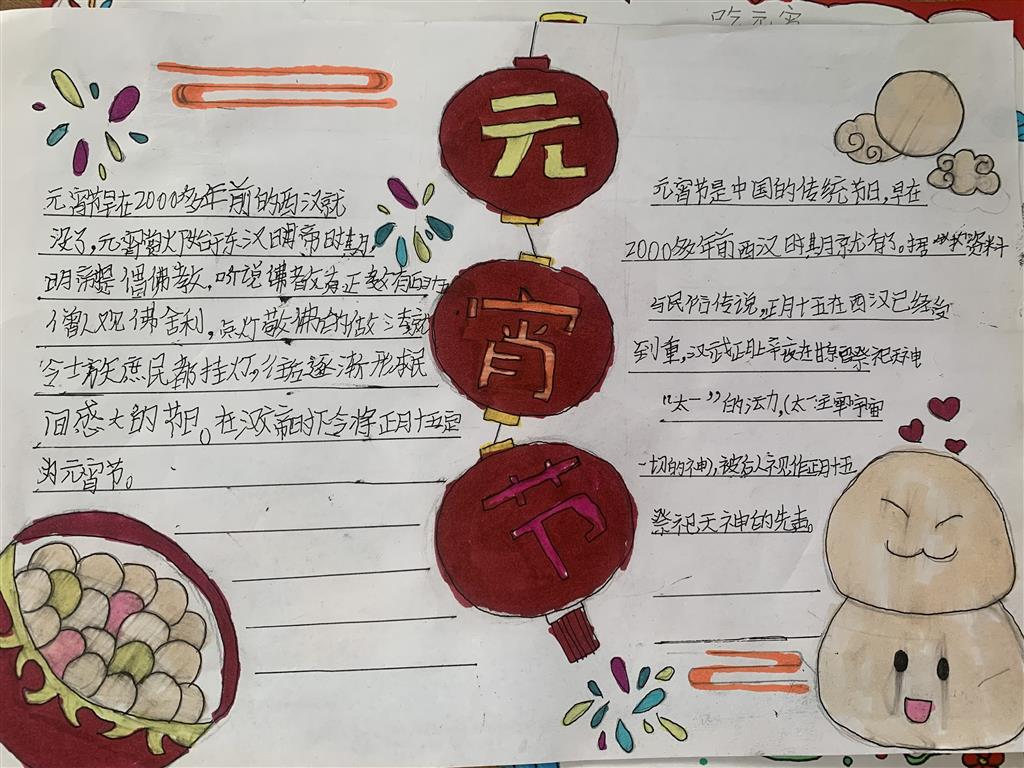 吃元宵
元宵节
元宵节早在2000多年前的西汉就
没了,元宵赏灯始于东汉明帝时期,
明帝提倡佛教,听说佛教有正月十五
僧人观佛舍利,点灯敬佛的做法就
令士族庶民都挂灯,往后逐渐形成民
间盛大的节日。在汉帝时下令将正月十五定
为元宵节。
元宵节是中国的传统节日,早在
2000多年前西汉时期就有了。据 资料
与民俗传说,正月十五在西汉已经受
到重,汉武正月上辛夜在甘泉宫祭祀天神
“太一”的活动,(太一主宰宇宙
一切的神),被后人视作正月十五
祭祀天神的先声。